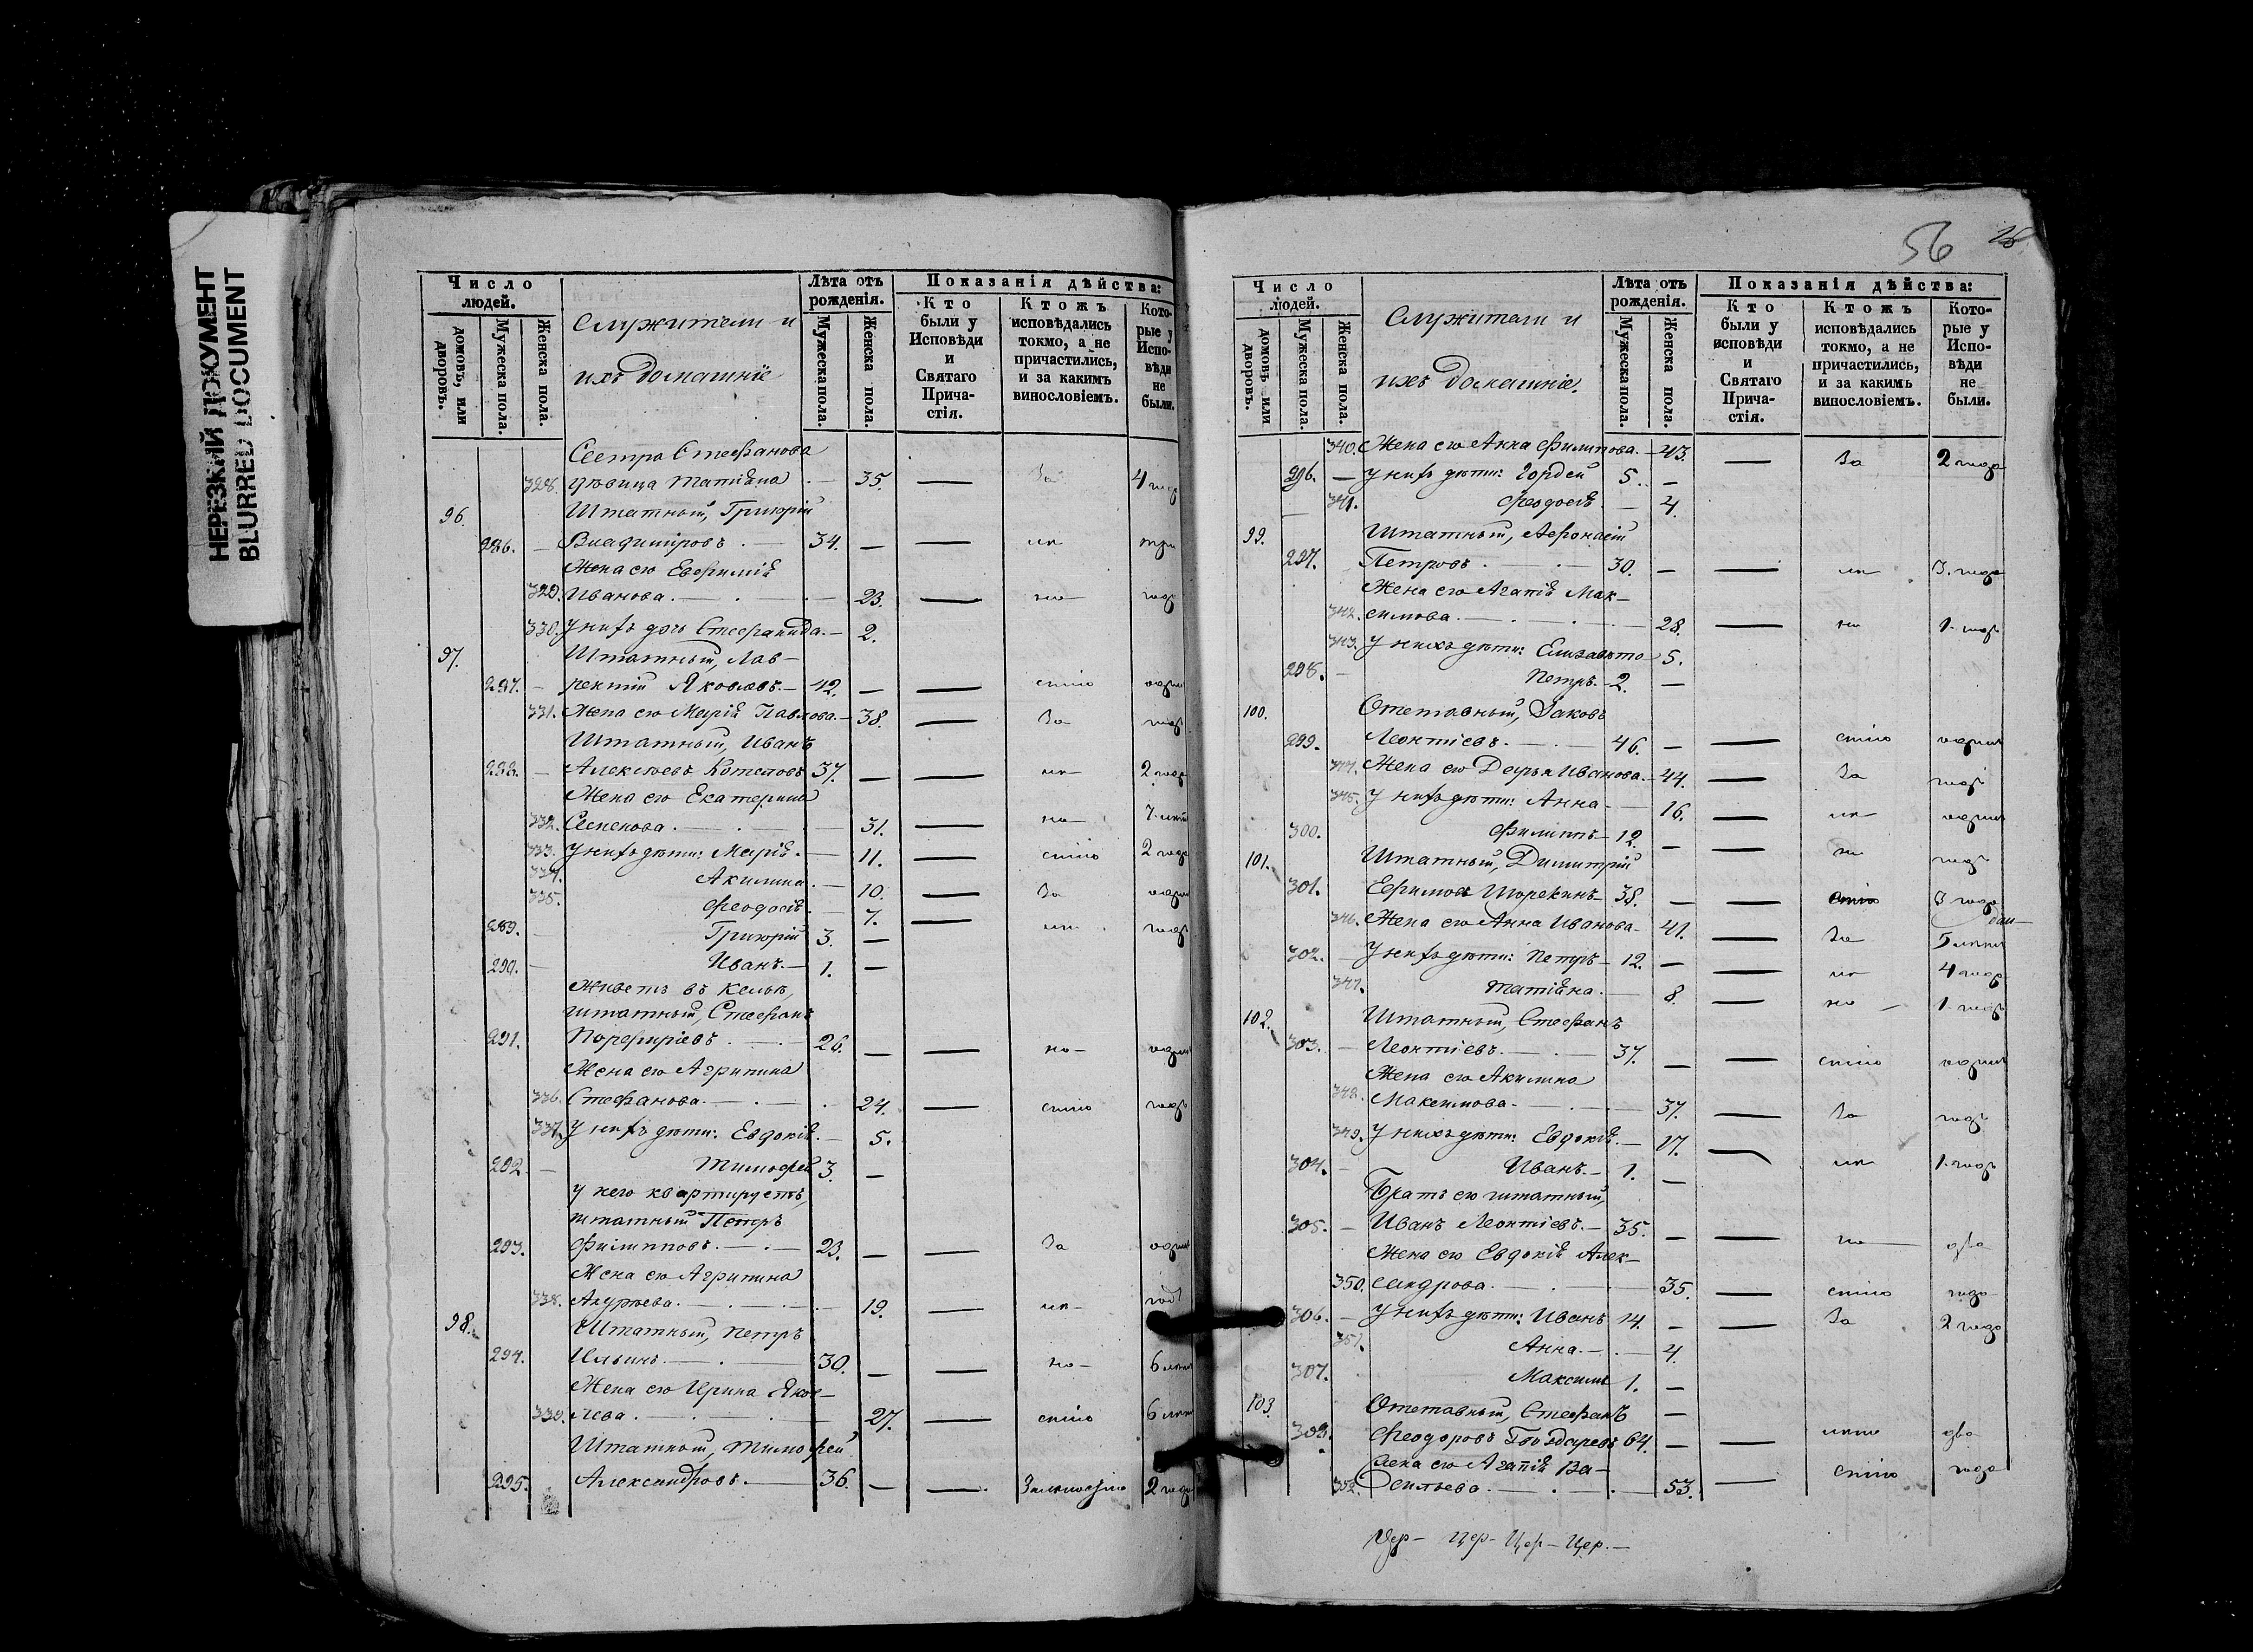 НЕРЕЗКИЙ ДОКУМЕНТ
BLURRED DOCUMENT
Число людей.
домовъ, или дворовъ.
Мужеска пола.
Женска пола.
Служители и
ихъ домашніе
Лѣта отъ рожденія.
Мужеска пола.
Женска пола.
Показанія дѣйства:
Кто были у Исповѣди и Святаго Причастія.
Ктожъ исповѣдались токмо, а не причастились, и за какимъ винословіемъ.
Которые у Исповѣди не были.
Сестра Стефанова
328. дѣвица Татіана — 35. — За 4 год
96. Штатный, Григорій
286. — Владиміровъ — 34. — — ис три
Жена его Евфимія
329. Иванова. — 23. — год
330. У нихъ дочь Стефанида. — 2.
97. Штатный, Лав-
287. — рентій Яковлевъ. — 42. — — стію один
331. Жена его Марія Павлова. — 38. — За год
Штатный, Иванъ
288. — Алексѣевъ Котеловъ 37. — — 2 год
Жена его Екатерина
332. Семенова. — 31. — 7 лѣт
333. У нихъ дѣти: Марія. — 11. — стію 2 год
334. Акилина. — 10. — За один
335. Феодосія. — 7. — год
289. — Григорій 3. —
290. — Иванъ. — 1. —
Живетъ въ кельѣ,
штатный, Стефанъ
291. Порфиріевъ — 26. — — один
Жена его Агрипина
336. Стефанова. — 24. — стію годъ
337. У нихъ дѣти: Евдокія. — 5.
292. — Тимофей 3. —
У него квартируетъ,
штатный Петръ
293. Филипповъ. — 23. — — За один
Жена его Агрипина
338. Андреева. — 19. — годъ
98. Штатный, Петръ
294. Ильинъ. — 30. — — 6 лѣт
Жена его Ирина Яков-
339. лева. — 27. — стію 6 лѣт
Штатный, Тимофей
295. Александровъ. — 36. — — 2 года
56
Число людей.
домовъ или дворовъ.
Мужеска пола.
Женска пола.
Служители и
ихъ домашніе.
Лѣта отъ рожденія.
Мужеска пола.
Женска пола.
Показанія дѣйства:
Кто были у исповѣди и Святаго Причастія.
Ктожъ исповѣдались токмо, а не причастились, и за какимъ винословіемъ.
Которые у Исповѣди не были.
340. Жена его Анна Филипова. — 43. — За 2 года
296. — У нихъ дѣти: Гордей 5. —
341. Феодосія — 4.
99. Штатный, Афонасій
297. Петровъ — 30. — — 3. года
Жена его Агапія Мак-
342. симова. — 28. — 1. годъ
343. У нихъ дѣти: Елизавета 5.
298. — Петръ. — 2. —
100. Отставный, Іаковъ
299. Леонтіевъ. — 46. — — стію один
344. Жена его Дарья Иванова. — 44. — За годъ
345. У нихъ дѣти: Анна — 16. — один
300. Филиппъ — 12. — — годъ
101. Штатный, Димитрій
301. Ефимовъ — 38. — — стію 3 года
346. Жена его Анна Иванова — 41. — За 5 лѣтъ
302. — У нихъ дѣти: Петръ — 12. — — 4 год
347. Татіана. — 8. — 1. годъ
102. Штатный, Стефанъ
303. — Леонтіевъ. — 37. — — стію один
Жена его Акилина
348. Максимова — 37. — За годъ
349. У нихъ дѣти: Евдокія. — 17. — 1. годъ
304. — Иванъ. — 1. —
Братъ его штатный,
305. — Иванъ Леонтіевъ. — 35. — — два
Жена его Евдокія Алек-
350. сандрова. — 35. — стію года
306. — У нихъ дѣти: Иванъ 14. — — За 2 года
351. Анна. — 4.
307. Максимъ 1. —
103. Отставный, Стефанъ —
308. Феодоровъ 64. — — два
Жена его Агапія Ва-
352. сильева. — 53. — стію года
Цер — Цер — Цер — Цер. —